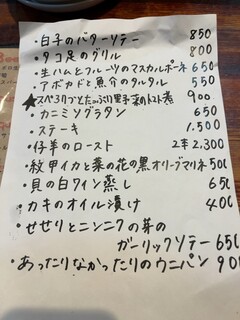 ・白子のバターソテー 850
・タコ足のグリル 800
・生ハムとフルーツのマスカルポーネ 650
・アボカドと魚介のタルタル 550
★スペアリブとたっぷり野菜のトマト煮 900
・カニミソグラタン 650
・ステーキ 1.500
・仔羊のロースト 2本 2.300
・紋甲イカと菜の花の黒オリーブマリネ 500
・貝の白ワイン蒸し 650
・カキのオイル漬け 400
・せせりとニンニクの芽の
ガーリックソテー 650
・あったりなかったりのウニパン 900